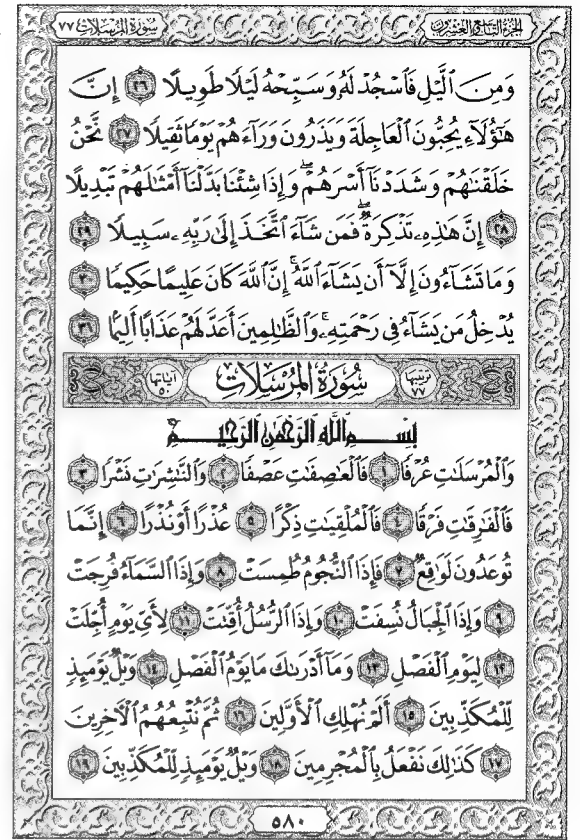 سُورَةُ المُرْسَلَات ٧٧
الجُزْءُ التَّاسِعُ وَالعِشْرُون
وَمِنَ ٱلَّيْلِ فَٱسْجُدْ لَهُۥ وَسَبِّحْهُ لَيْلًا طَوِيلًا ٢٦ إِنَّ
هَٰٓؤُلَآءِ يُحِبُّونَ ٱلْعَاجِلَةَ وَيَذَرُونَ وَرَآءَهُمْ يَوْمًا ثَقِيلًا ٢٧ نَّحْنُ
خَلَقْنَٰهُمْ وَشَدَدْنَآ أَسْرَهُمْ ۖ وَإِذَا شِئْنَا بَدَّلْنَآ أَمْثَٰلَهُمْ تَبْدِيلًا
٢٨ إِنَّ هَٰذِهِۦ تَذْكِرَةٌ ۖ فَمَن شَآءَ ٱتَّخَذَ إِلَىٰ رَبِّهِۦ سَبِيلًا ٢٩
وَمَا تَشَآءُونَ إِلَّآ أَن يَشَآءَ ٱللَّهُ ۚ إِنَّ ٱللَّهَ كَانَ عَلِيمًا حَكِيمًا ٣٠
يُدْخِلُ مَن يَشَآءُ فِى رَحْمَتِهِۦ ۚ وَٱلظَّٰلِمِينَ أَعَدَّ لَهُمْ عَذَابًا أَلِيمًۢا ٣١
ترتيبها ٧٧ سُورَةُ المُرْسَلَات آياتها ٥٠
بِسْمِ ٱللَّهِ ٱلرَّحْمَٰنِ ٱلرَّحِيمِ
وَٱلْمُرْسَلَٰتِ عُرْفًا ١ فَٱلْعَٰصِفَٰتِ عَصْفًا ٢ وَٱلنَّٰشِرَٰتِ نَشْرًا ٣
فَٱلْفَٰرِقَٰتِ فَرْقًا ٤ فَٱلْمُلْقِيَٰتِ ذِكْرًا ٥ عُذْرًا أَوْ نُذْرًا ٦ إِنَّمَا
تُوعَدُونَ لَوَٰقِعٌ ٧ فَإِذَا ٱلنُّجُومُ طُمِسَتْ ٨ وَإِذَا ٱلسَّمَآءُ فُرِجَتْ
٩ وَإِذَا ٱلْجِبَالُ نُسِفَتْ ١٠ وَإِذَا ٱلرُّسُلُ أُقِّتَتْ ١١ لِأَىِّ يَوْمٍ أُجِّلَتْ
١٢ لِيَوْمِ ٱلْفَصْلِ ١٣ وَمَآ أَدْرَىٰكَ مَا يَوْمُ ٱلْفَصْلِ ١٤ وَيْلٌ يَوْمَئِذٍ
لِّلْمُكَذِّبِينَ ١٥ أَلَمْ نُهْلِكِ ٱلْأَوَّلِينَ ١٦ ثُمَّ نُتْبِعُهُمُ ٱلْءَاخِرِينَ
١٧ كَذَٰلِكَ نَفْعَلُ بِٱلْمُجْرِمِينَ ١٨ وَيْلٌ يَوْمَئِذٍ لِّلْمُكَذِّبِينَ ١٩
٥٨٠